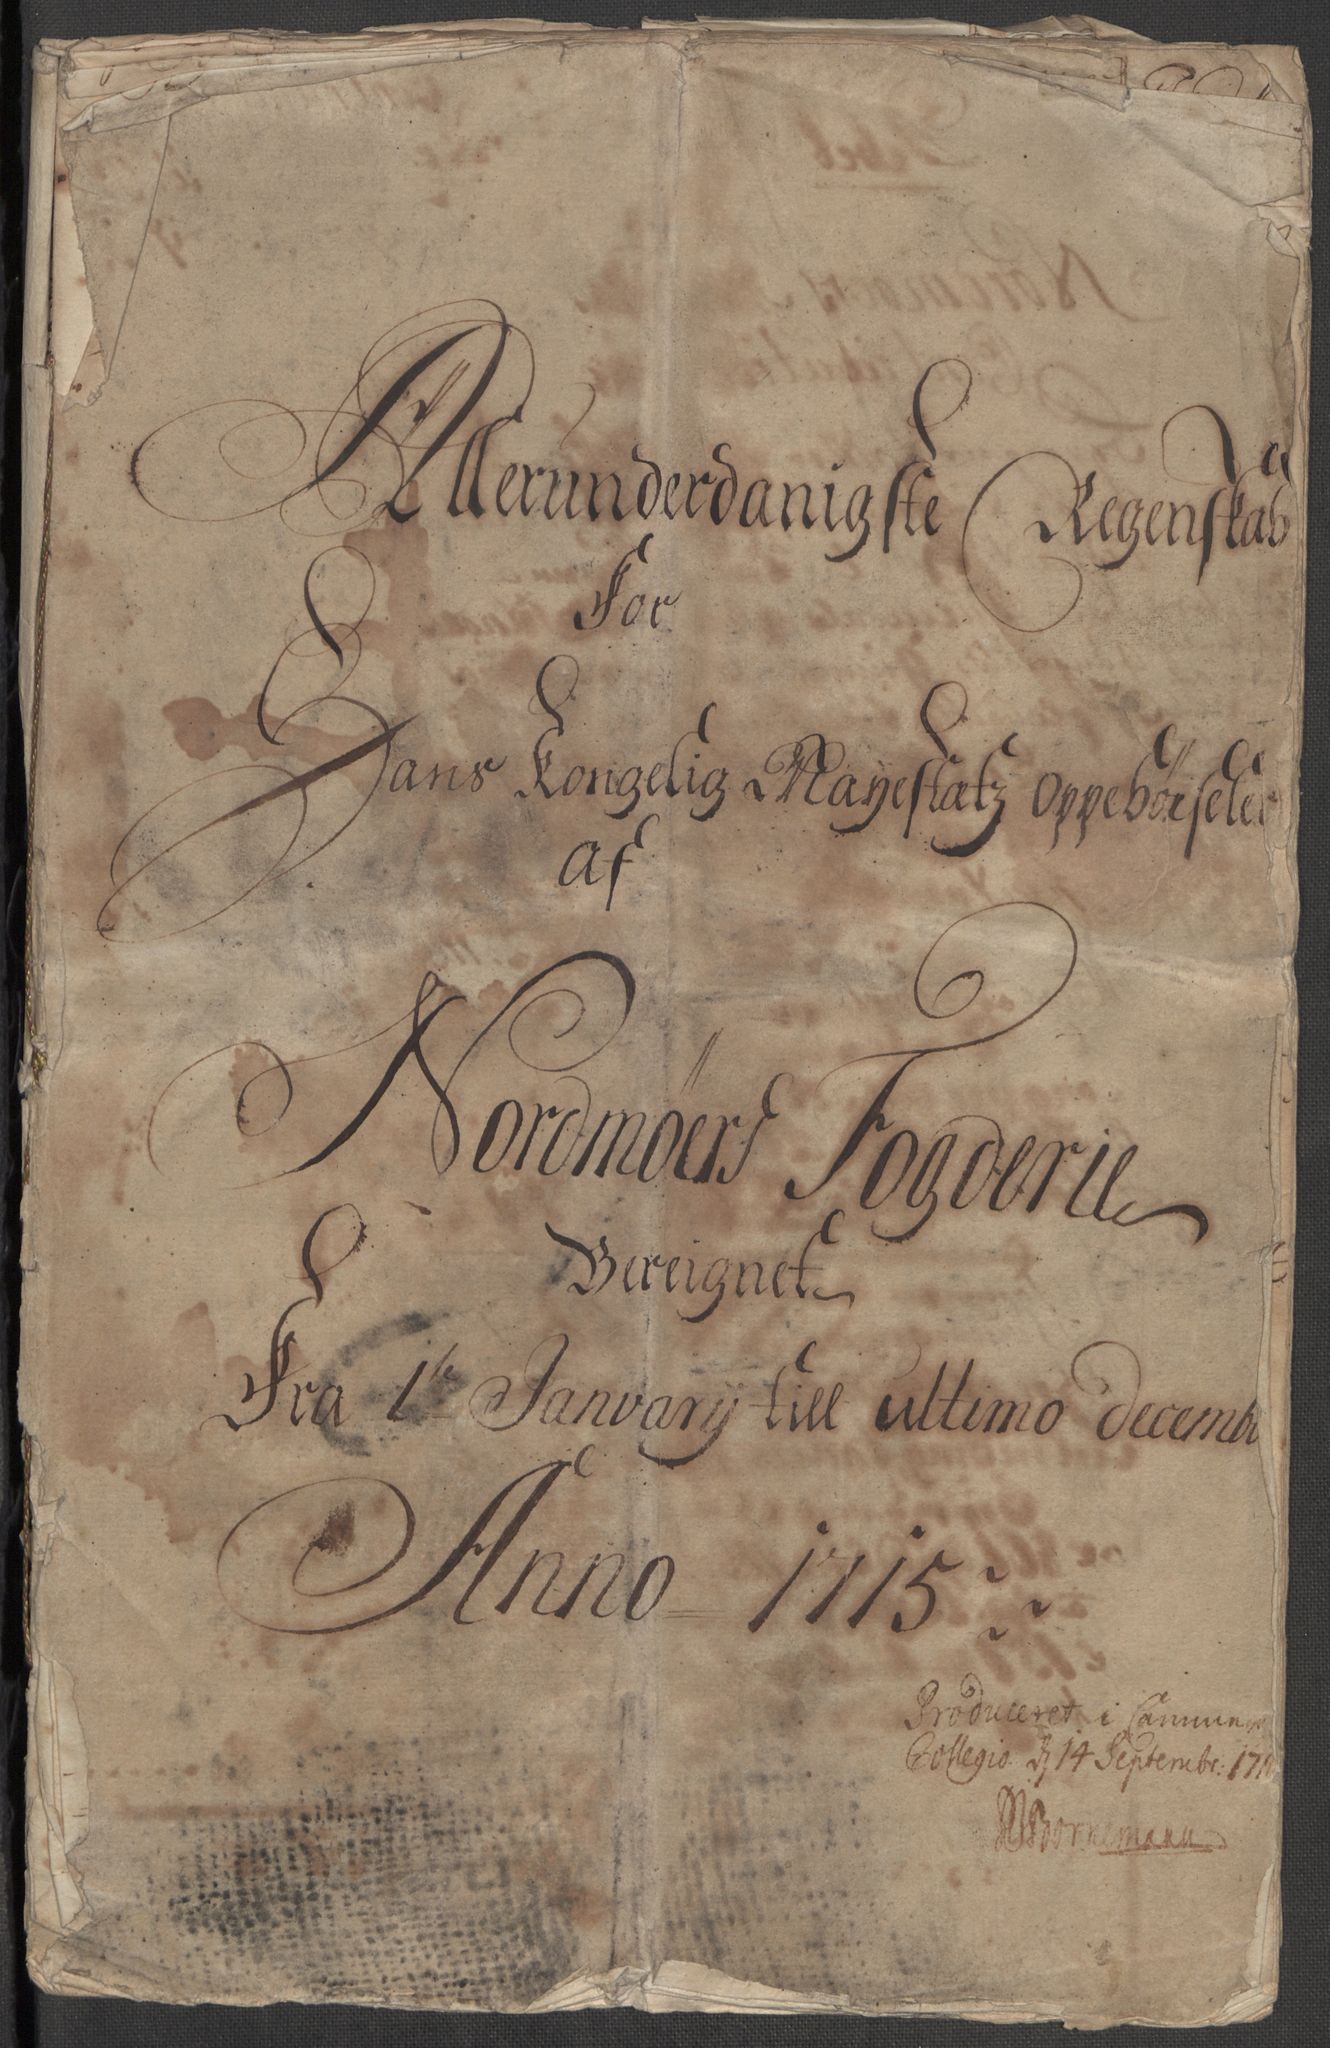 Allerunderdanigste Regenskab
For
Hans Kongelig Mayestætz Oppebørseler
af
Nordmøers Fogderie
Bereignet
Fra 1te January till ultimo decembr
Anno 1715
Produceret i Cammer
Collegio d 14 Septembr: 171
Bornemann